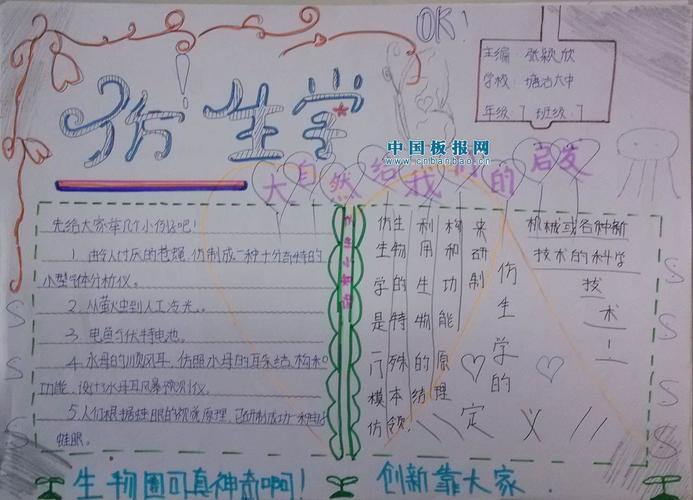 OK!
主编 张颖欣
学校: 塘沽六中
年级: 7 班级: 7
仿生学
中国板报网
www.cnbanbao.cn
大自然给我们的启发
先给大家举几个小例吧!
1. 由令人讨厌的苍蝇,仿制成一种十分奇特的
小型气体分析仪。
2. 从萤火虫到人工冷光。
3. 电鱼与伏特电池。
4. 水母的顺风耳,仿照水母的耳朵结构和
功能,设计水母耳风暴预测仪。
5. 人们根据蛙眼的视觉原理,已研制成功一种电子
蛙眼。
仿生学是一门模仿
生物的特殊本领,
利用生物的结构和功能原理
来研制
机械或各种新
技术的科学
技
术
仿生学的
定义
生物圈可真神奇啊!
创新靠大家